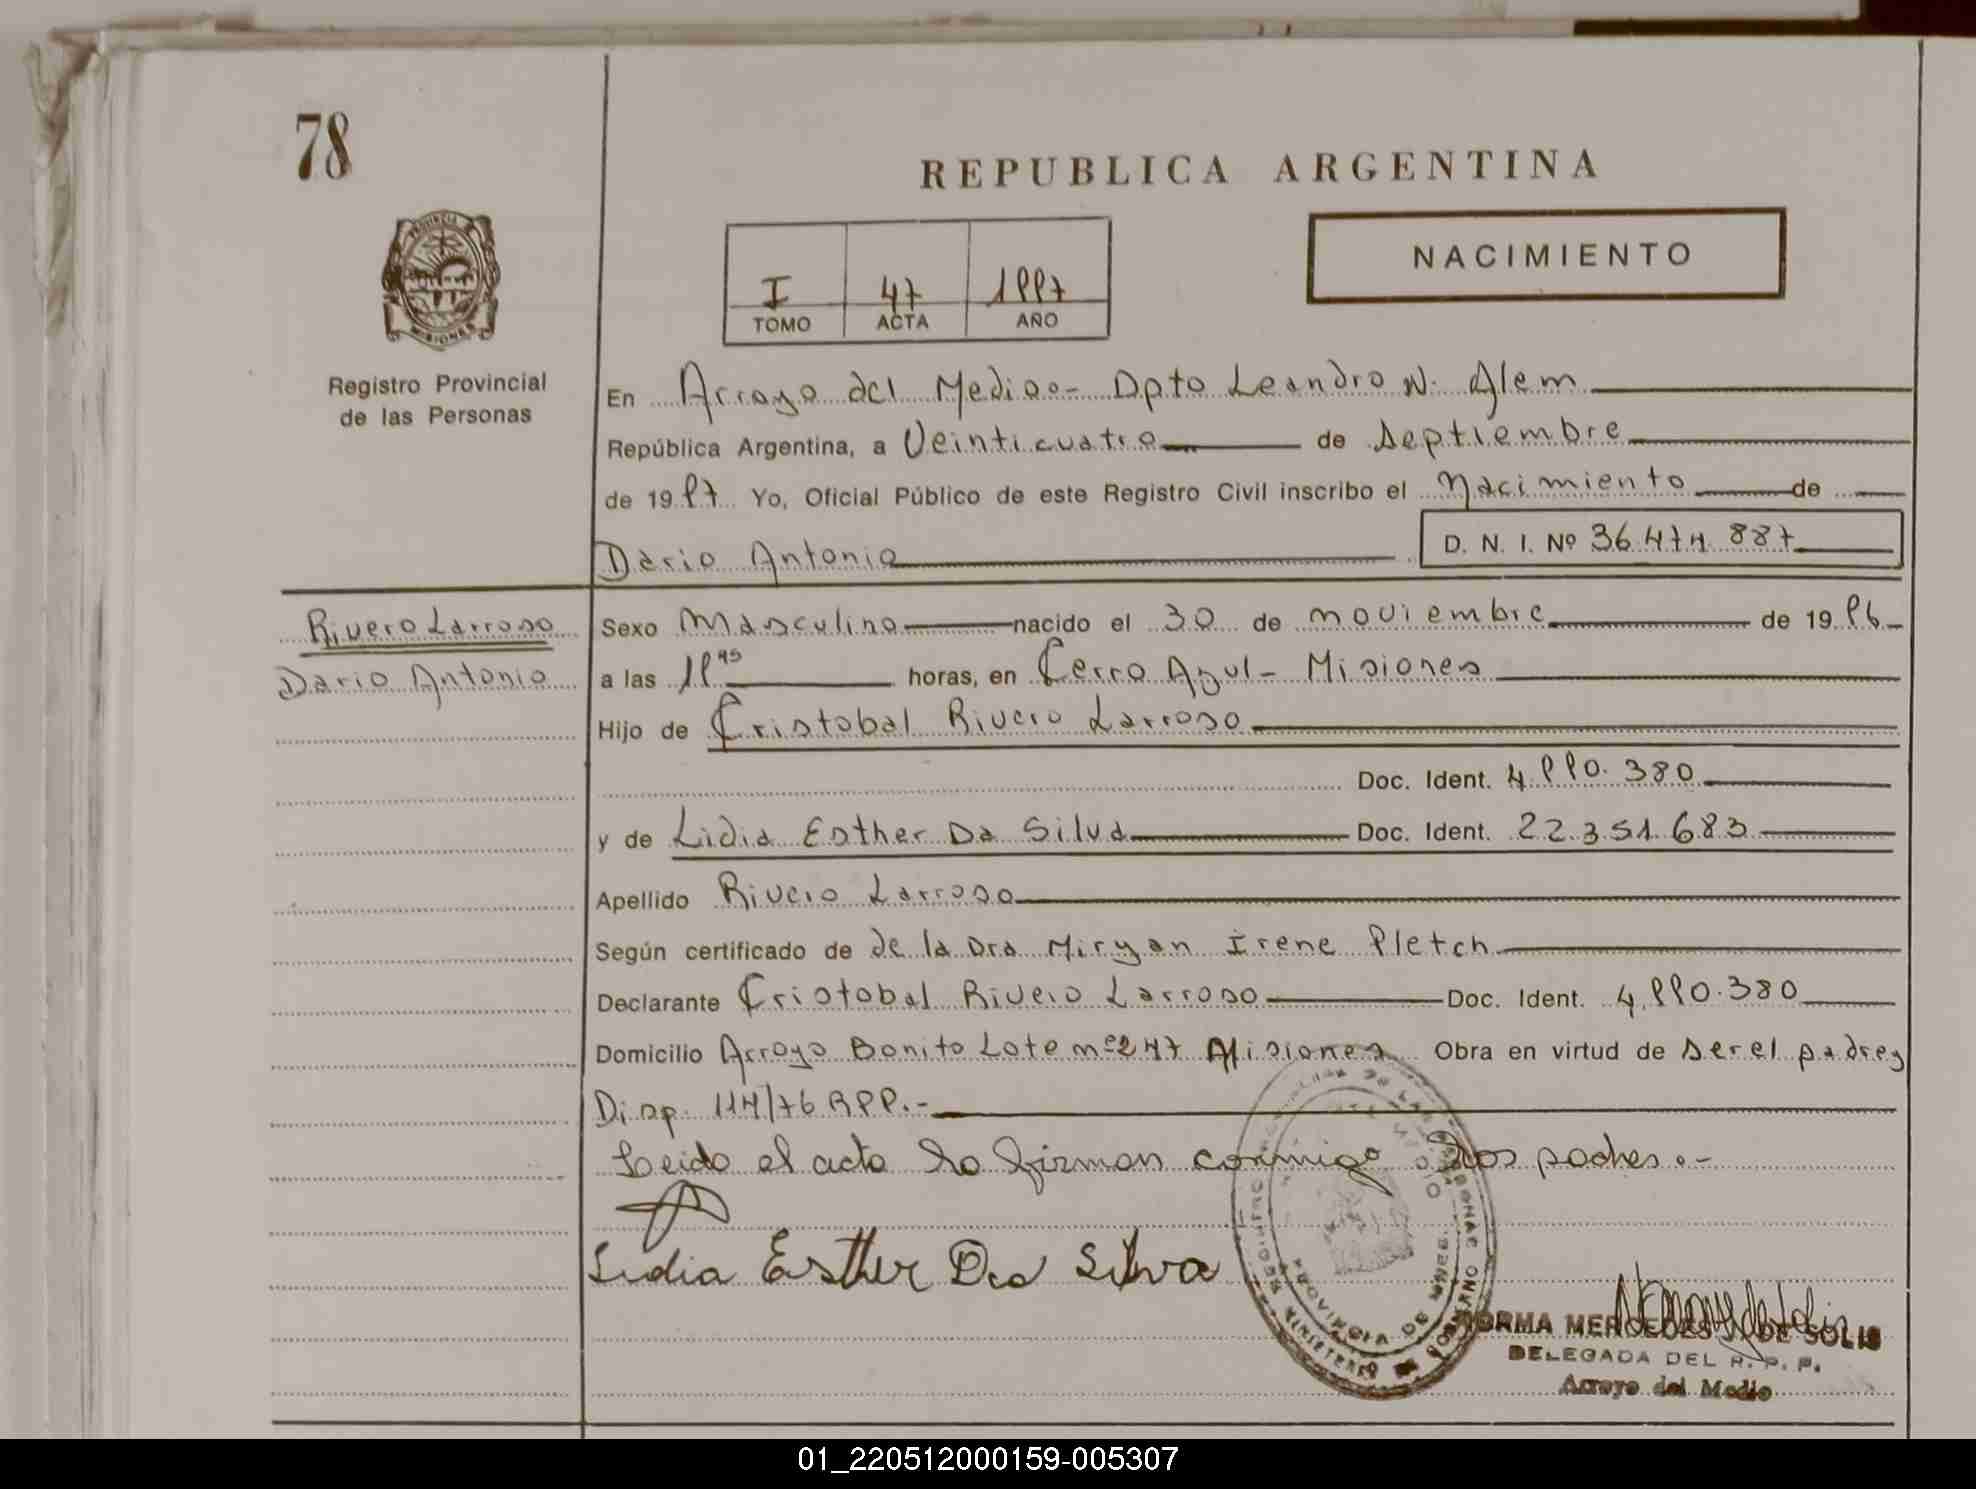 78
REPUBLICA ARGENTINA
NACIMIENTO
I 47 1997
TOMO ACTA AÑO
PROVINCIA
MISIONES
Registro Provincial
de las Personas
En Arroyo del Medio.- Dpto Leandro N. Alem
República Argentina, a Veinticuatro de Septiembre
de 1997 Yo, Oficial Público de este Registro Civil inscribo el Nacimiento de
Dario Antonio D. N. I. Nº 36.474.887
Rivero Larroso
Dario Antonio
Sexo Masculino nacido el 30 de noviembre de 1996
a las 19 45 horas, en Cerro Azul - Misiones
Hijo de Cristobal Rivero Larroso
Doc. Ident. 4.990.380
y de Lidia Esther Da Silva Doc. Ident. 22.351.683
Apellido Rivero Larroso
Según certificado de de la Dra Miryan Irene Pletch
Declarante Cristobal Rivero Larroso Doc. Ident. 4.990.380
Domicilio Arroyo Bonito Lote nº 247 Misiones Obra en virtud de ser el padre y
Disp. 114/76 RPP.-
Leido el acta la firman conmigo los padres.-
Lidia Esther Da Silva
PROVINCIA DE MNES.
MINISTERIO DE GOBIERNO
NORMA MERCEDES DE SOLIS
DELEGADA DEL R. P. P.
Arroyo del Medio
01_220512000159-005307